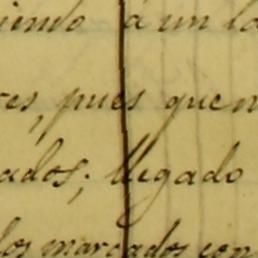 iendo á un la
es, pues que n
ados; llegado
los marcados con